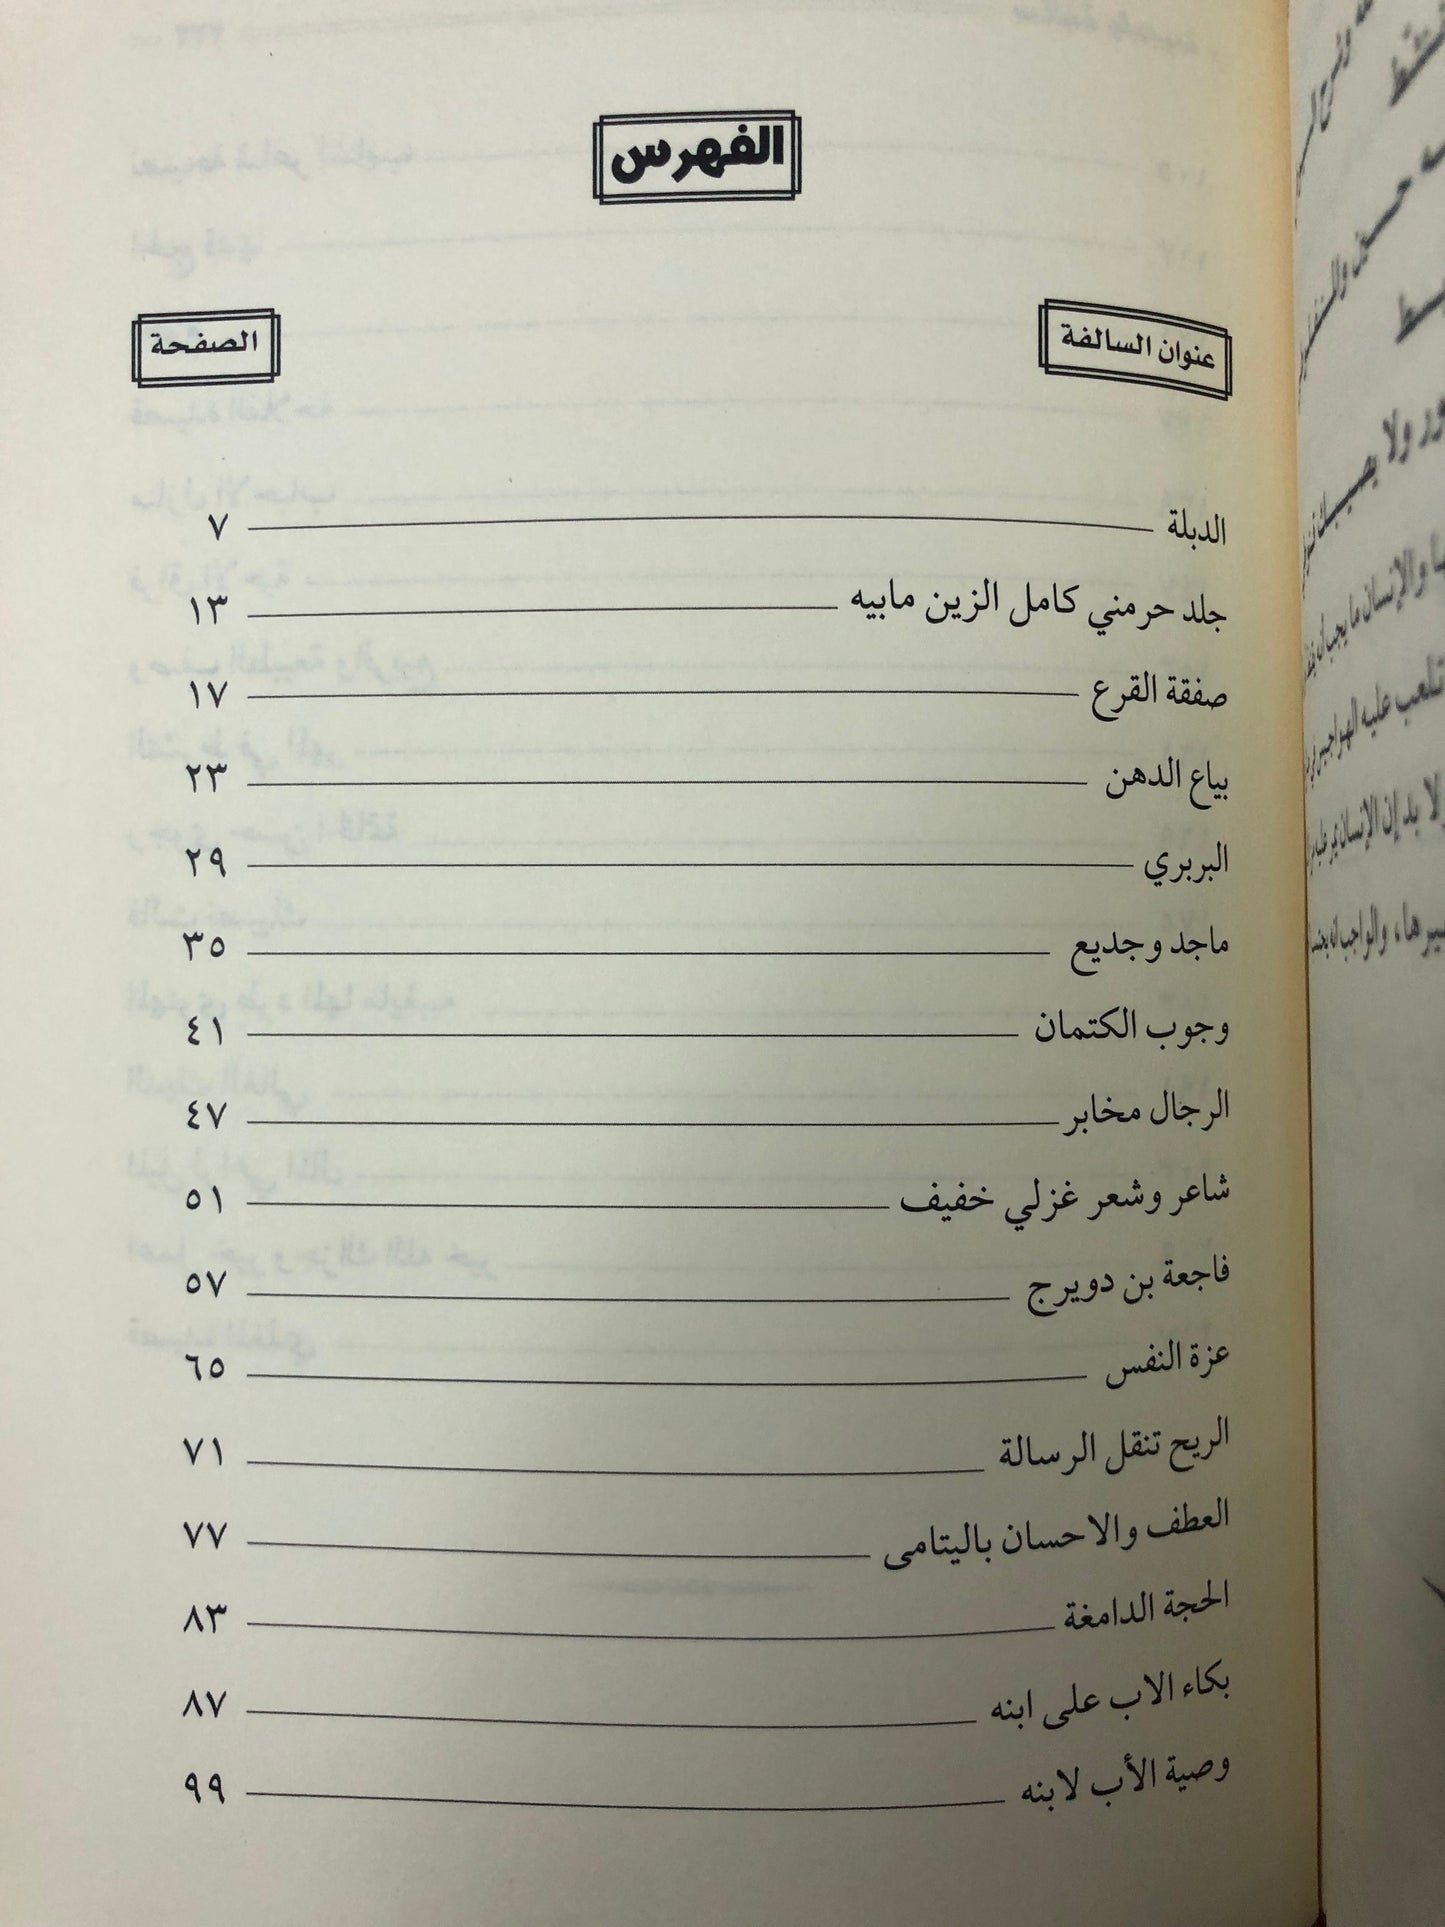 الفهرس
عنوان السالفة الصفحة
الدبلة ٧
جلد حرمني كامل الزين مابيه ١٣
صفقة القرع ١٧
بياع الدهن ٢٣
البربري ٢٩
ماجد وجديع ٣٥
وجوب الكتمان ٤١
الرجال مخابر ٤٧
شاعر وشعر غزلي خفيف ٥١
فاجعة بن دويرج ٥٧
عزة النفس ٦٥
الريح تنقل الرسالة ٧١
العطف والاحسان باليتامى ٧٧
الحجة الدامغة ٨٣
بكاء الاب على ابنه ٨٧
وصية الأب لابنه ٩٩